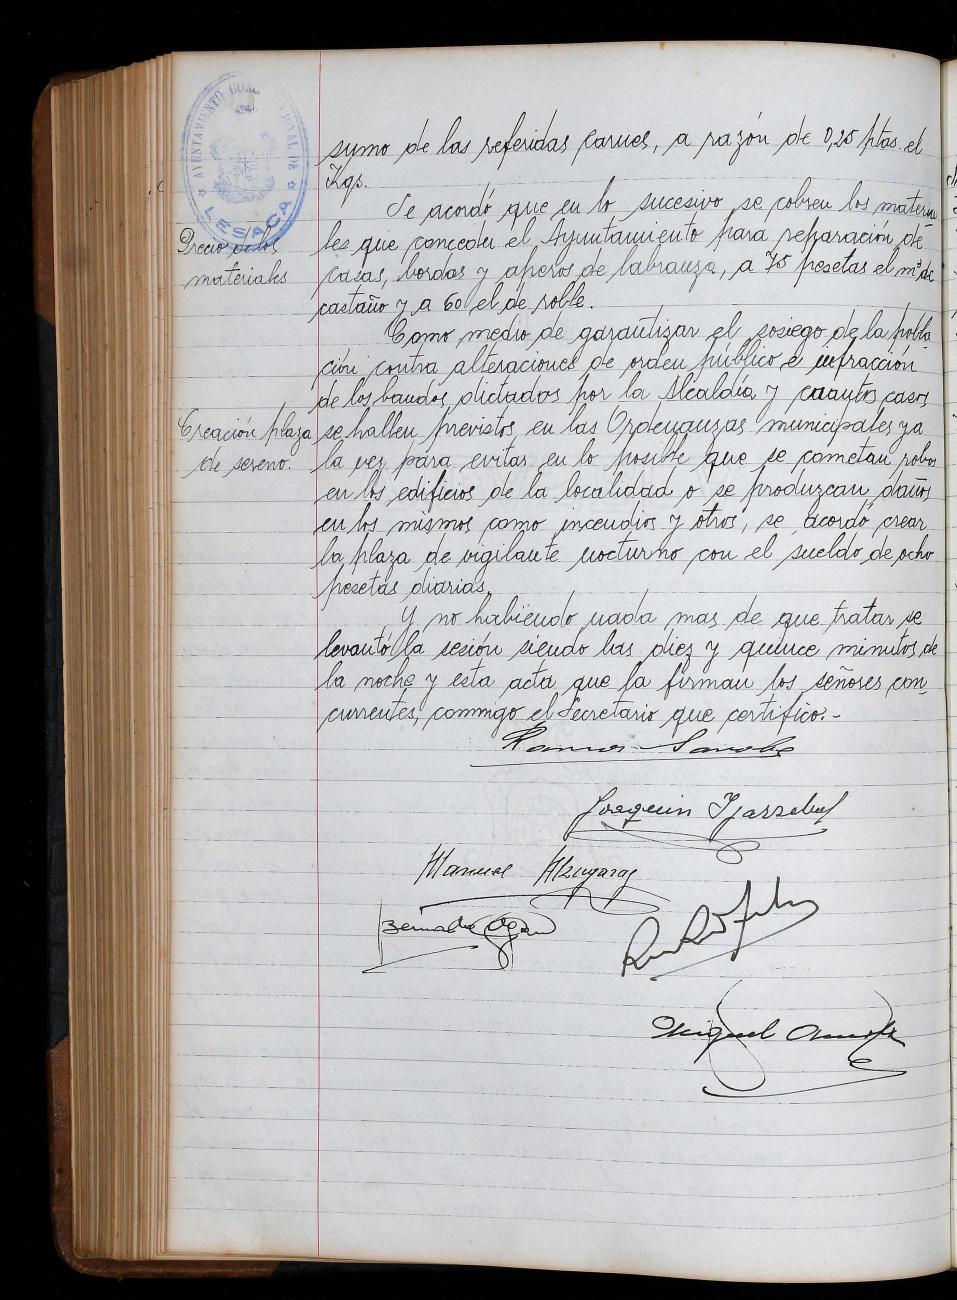 AYUNTAMIENTO CONSTITUCIONAL DE
LESACA
sumo de las referidas carnes, a razón de 0,25 ptas. el
Kgs.
Se acordó que en lo sucesivo se cobren los materia
Precio de los
materiales
les que conceda el Ayuntamiento para reparación de
casas, bordas y aperos de labranza, a 75 pesetas el m³ de
castaño y a 60 el de roble.
Como medio de garantizar el sosiego de la pobla
ción contra alteraciones de orden público e infracción
de los bandos dictados por la Alcaldía y cuantos casos
Creación plaza
de sereno.
se hallen previstos en las Ordenanzas municipales y a
la vez para evitar en lo posible que se cometan robos
en los edificios de la localidad o se produzcan daños
en los mismos como incendios y otros, se acordó crear
la plaza de vigilante nocturno con el sueldo de ocho
pesetas diarias.
Y no habiendo nada mas de que tratar se
levantó la sesión siendo las diez y quince minutos de
la noche y esta acta que la firman los señores con
currentes, conmigo el Secretario que certifico.-
Joaquin
Manuel Alzugaray
Bernardo
Miguel